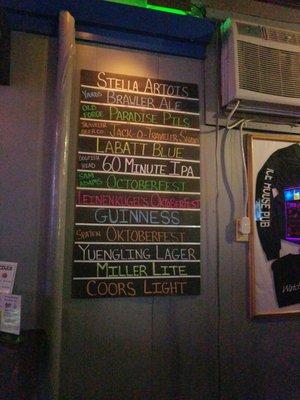 Stella Artois
Yards Brawler Ale
Old Forge Paradise Pils
Labatt Blue
Dogfish Head 60 Minute IPA
Sam Adams Octoberfest
Leinenkugel's Oktoberfest
Guinness
Spaten Oktoberfest
Yuengling Lager
Miller Lite
Coors Light